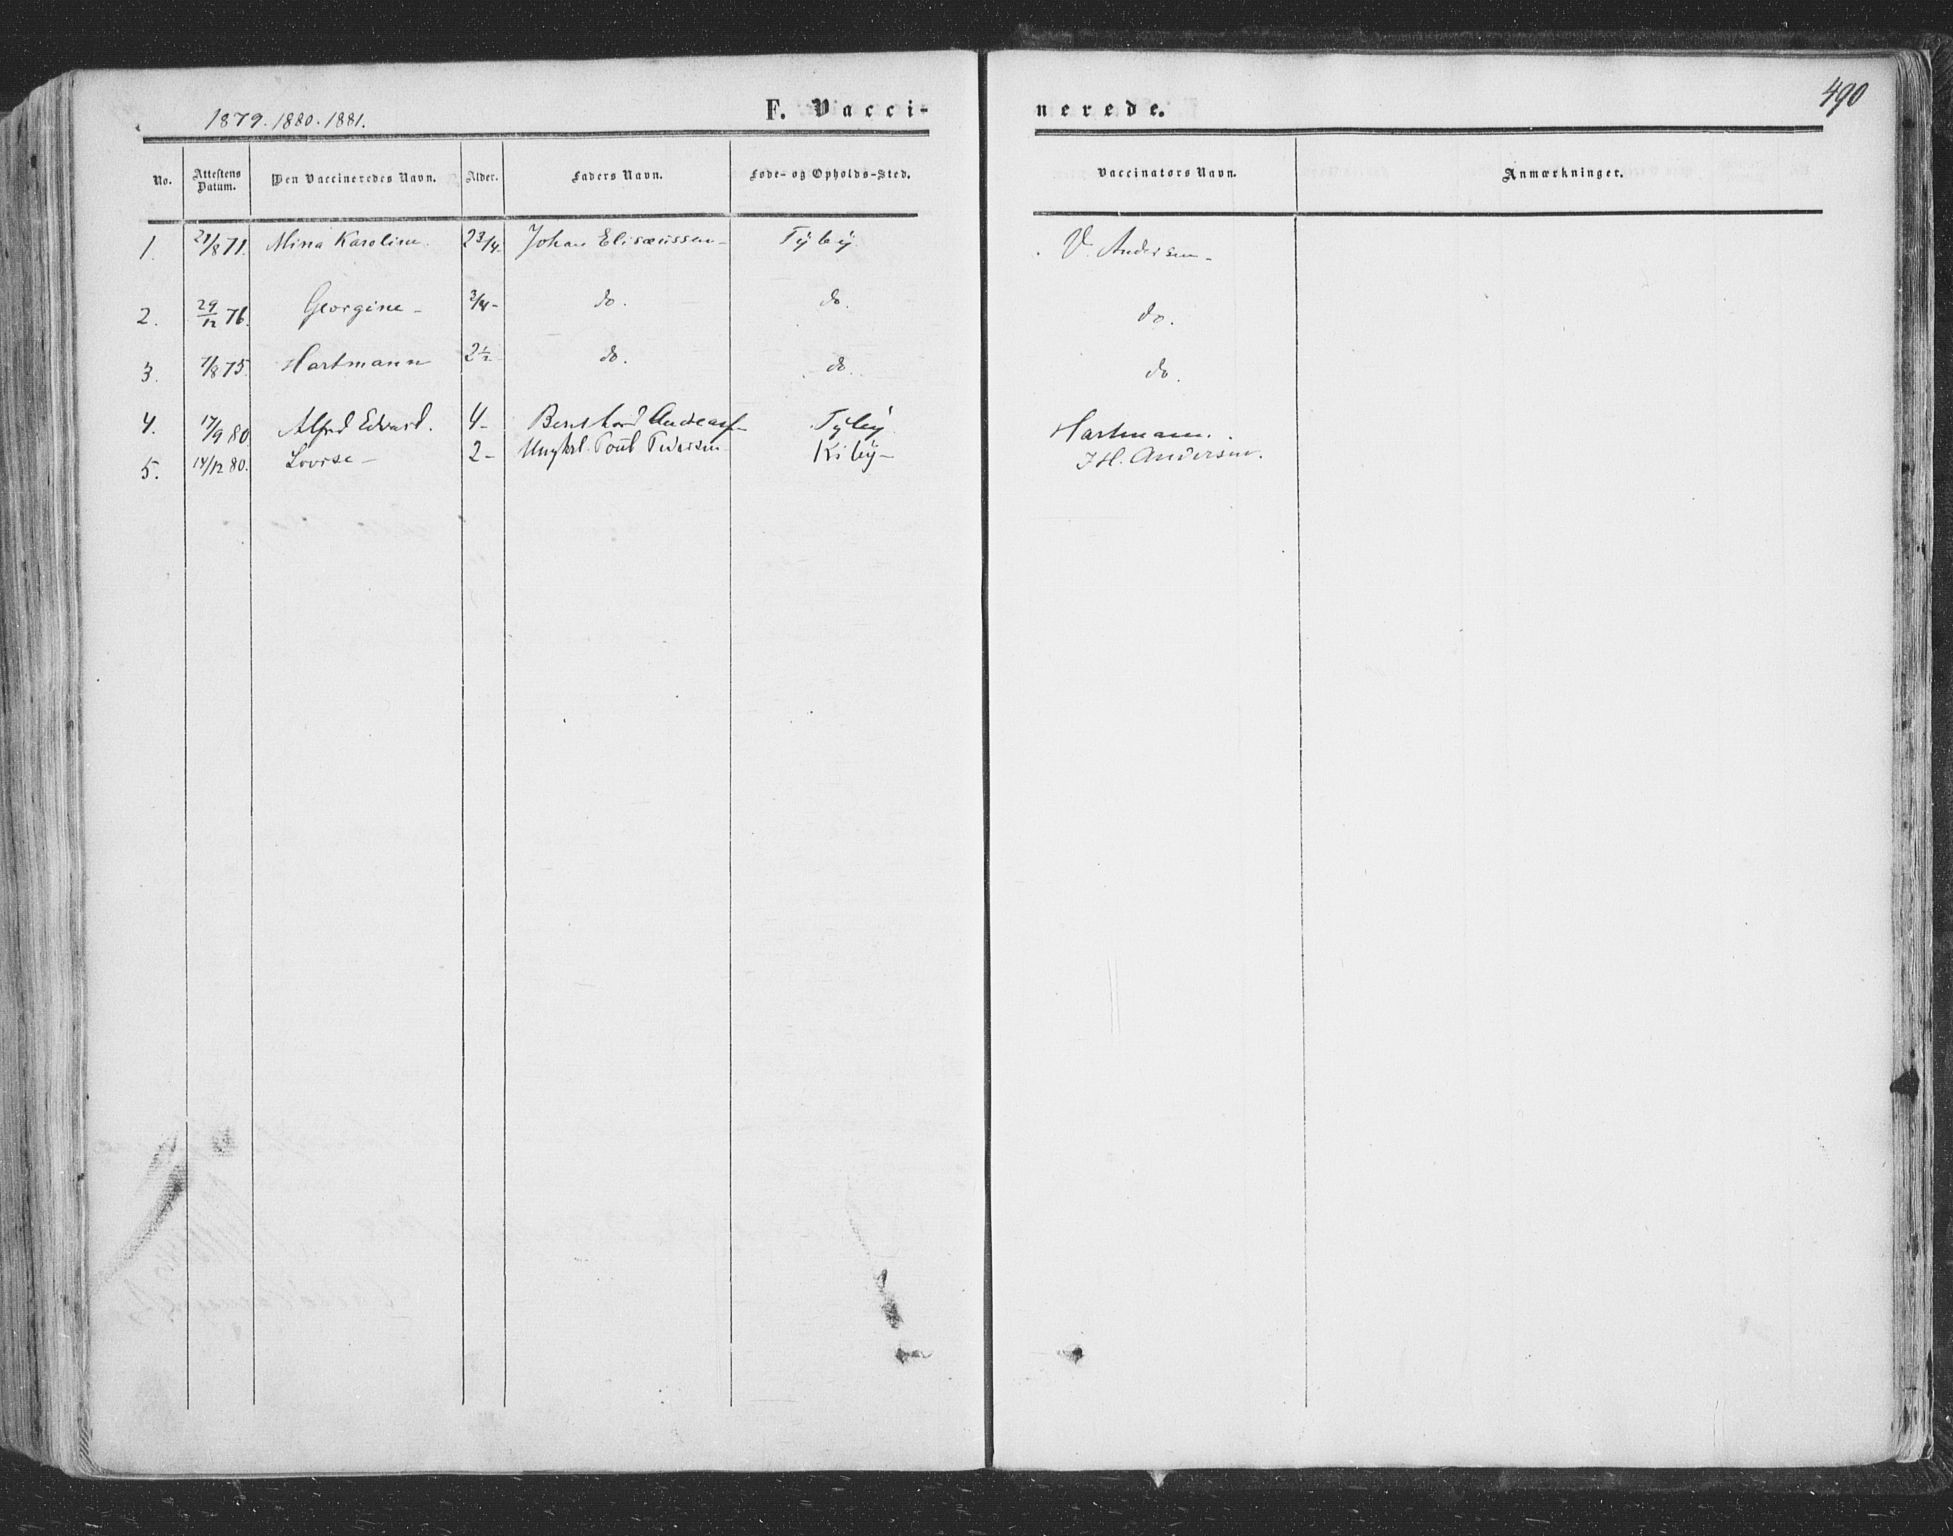 1879. 1880. 1881. F. Vacci- nerede. 490
No. Attestens Datum. Den Vaccineredes Navn. Alder. Faders Navn. Føde- og Opholds-Sted. Vaccinators Navn. Anmærkninger.
1. 21/8 71. Mina Karoline. 2 3/4- Johan Elisæussen- Tyby. V. Andersen-
2. 29/12 76. Georgine- 3/4- do. do. do.
3. 7/8 75. Hartmann 2 1/2 do. do. do.
4. 17/9 80 Alfred Edvard. 4- Bernhard Tyby. Hartmann.
5. 14/12 80. Lovise- 2- Ungkrl. Pedersen Kiby- J H. Andersen.